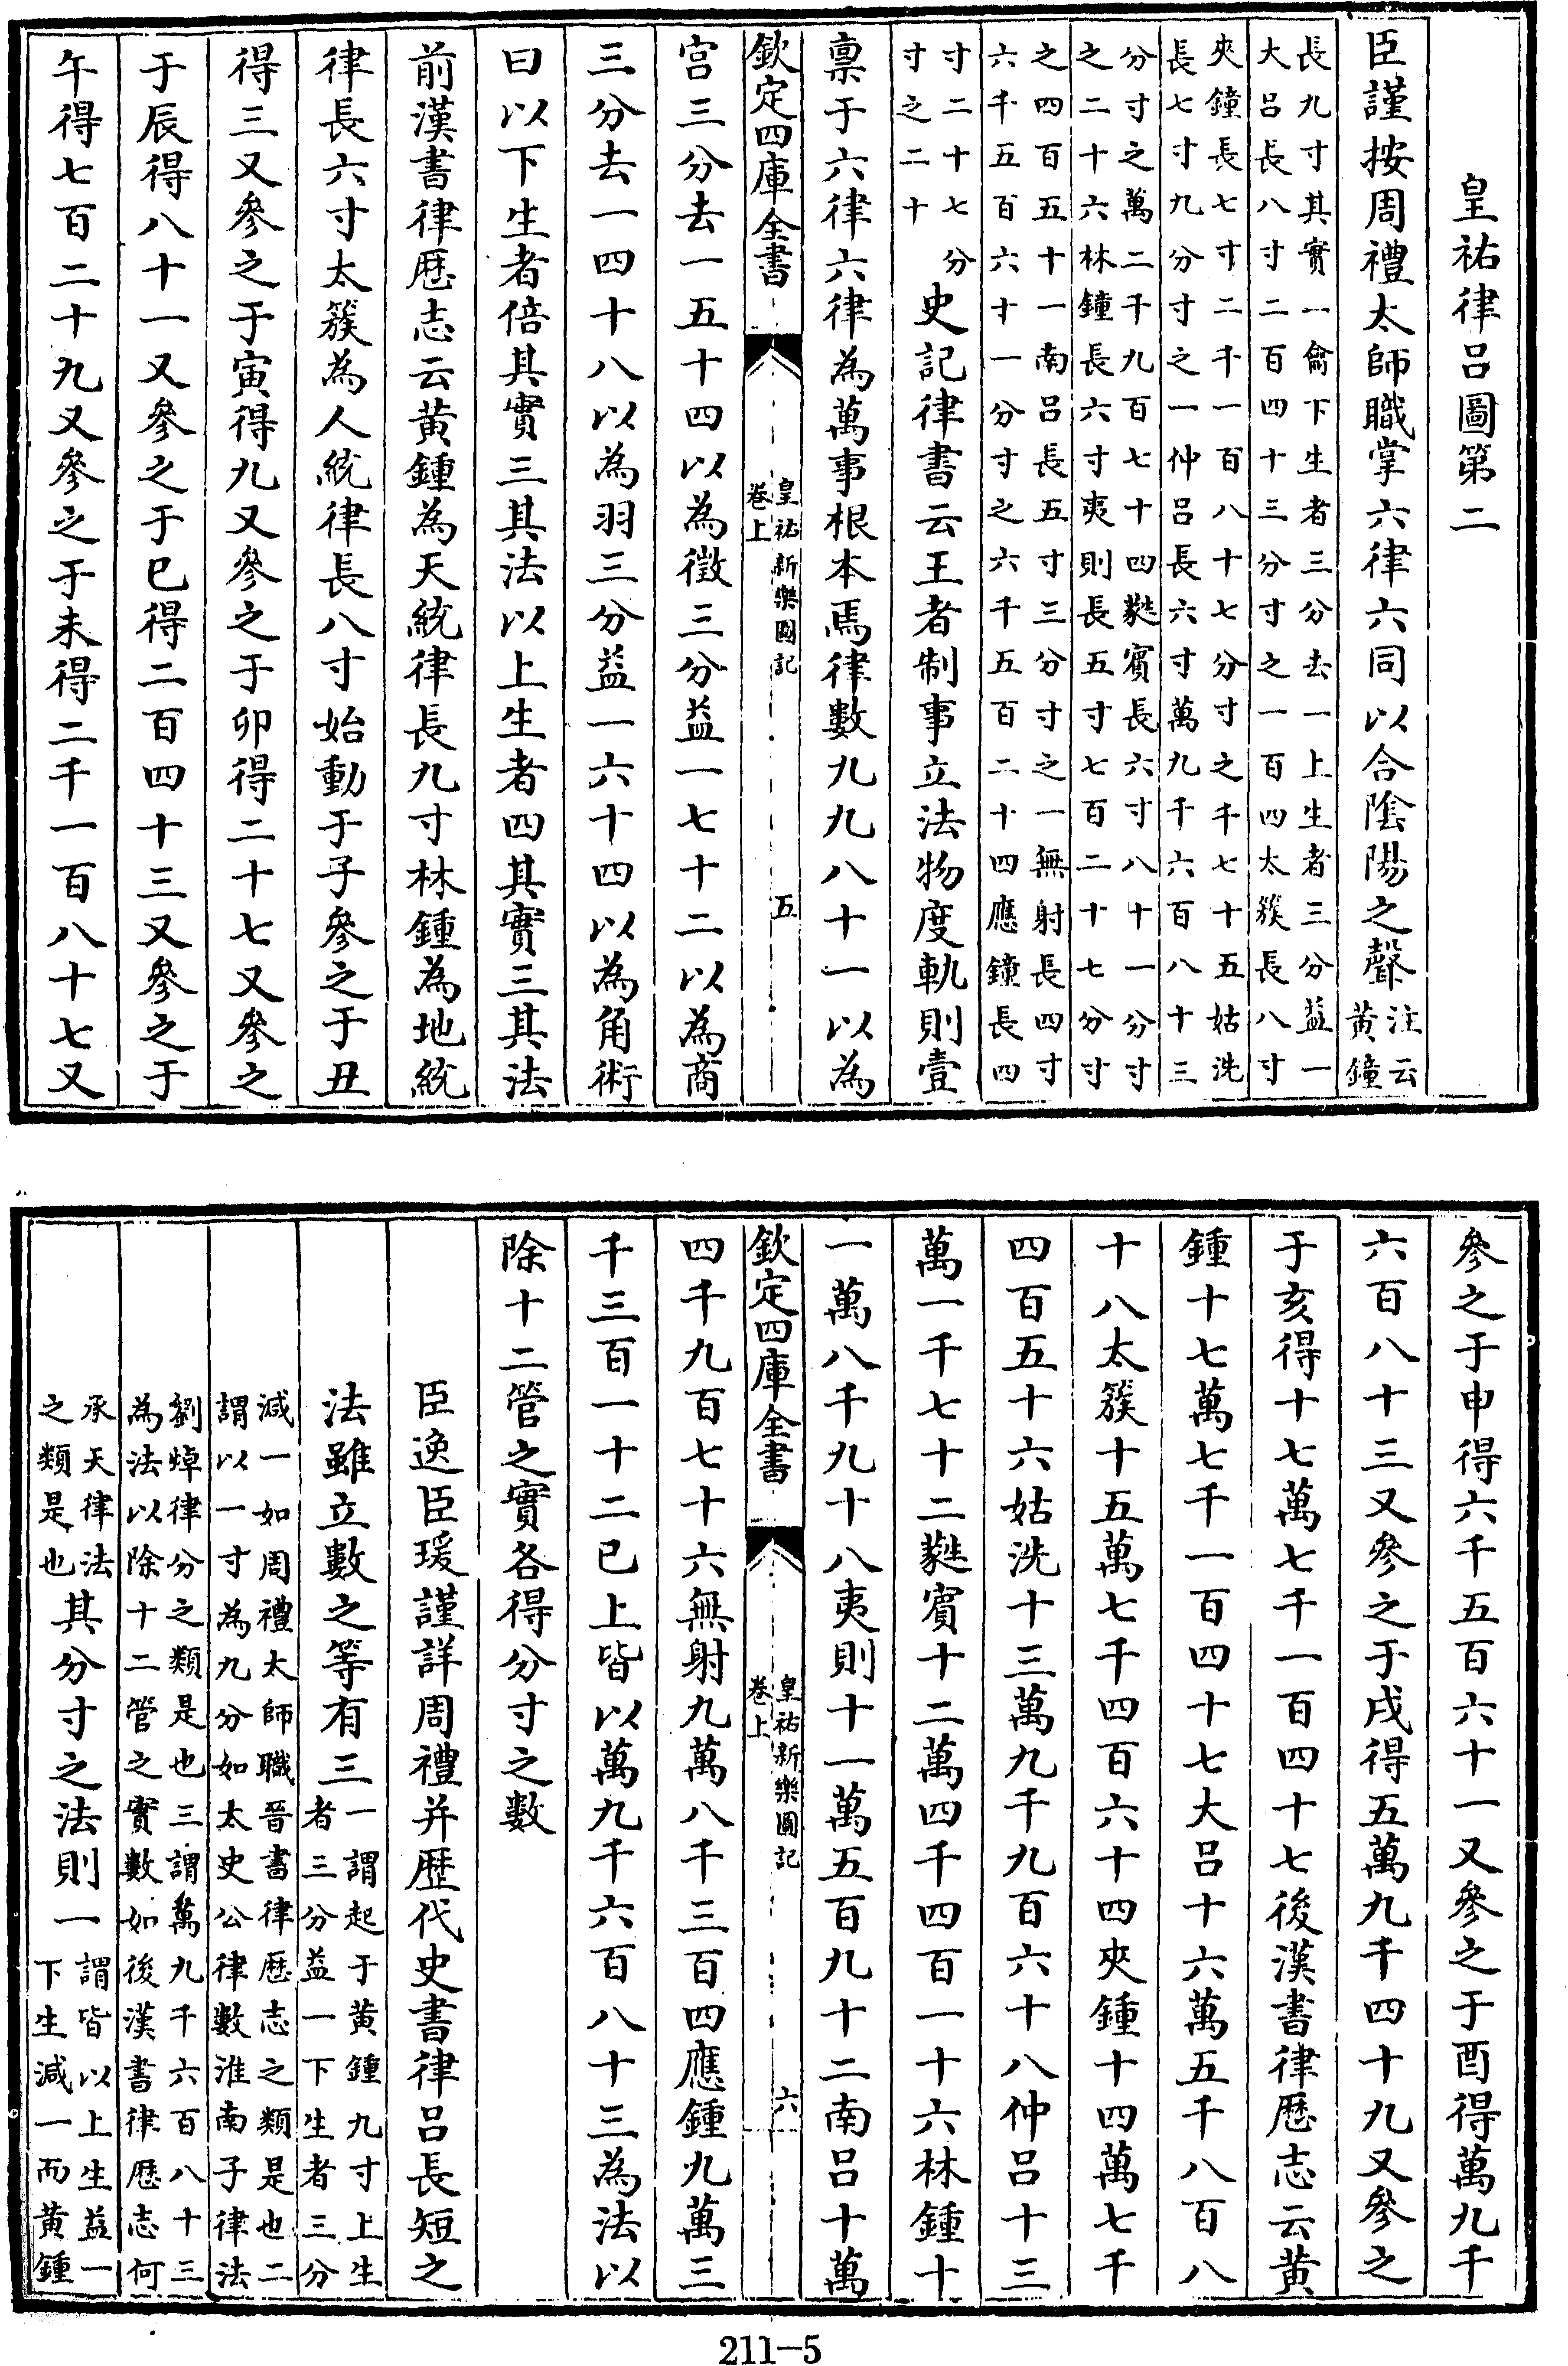 皇祐律呂圖第二
臣謹按周禮太師職掌六律六同以合陰陽之聲
注云
黃鐘
長九寸其實一龠下生者三分去一上生者三分益一
大呂長八寸二百四十三分寸之一百四太簇長八寸
夾鐘長七寸二千一百八十七分寸之千七十五姑洗
長七寸九分寸之一仲呂長六寸萬九千六百八十三
分寸之萬二千九百七十四蕤賓長六寸八十一分寸
之二十六林鐘長六寸夷則長五寸七百二十七分寸
之四百五十一南呂長五寸三分寸之一無射長四寸
六千五百六十一分寸之六千五百二十四應鐘長四
寸二十七分
寸之二十
史記律書云王者制事立法物度軌則壹
稟于六律六律為萬事根本焉律數九九八十一以為
欽定四庫全書
皇祐新樂圖記
卷上
五
宮三分去一五十四以為徵三分益一七十二以為商
三分去一四十八以為羽三分益一六十四以為角術
曰以下生者倍其實三其法以上生者四其實三其法
前漢書律歷志云黃鍾為天統律長九寸林鍾為地統
律長六寸太簇為人統律長八寸始動于子參之于丑
得三又參之于寅得九又參之于卯得二十七又參之
于辰得八十一又參之于巳得二百四十三又參之于
午得七百二十九又參之于未得二千一百八十七又
參之于申得六千五百六十一又參之于酉得萬九千
六百八十三又參之于戌得五萬九千四十九又參之
于亥得十七萬七千一百四十七後漢書律歷志云黃
鍾十七萬七千一百四十七大呂十六萬五千八百八
十八太簇十五萬七千四百六十四夾鍾十四萬七千
四百五十六姑洗十三萬九千九百六十八仲呂十三
萬一千七十二蕤賓十二萬四千四百一十六林鍾十
一萬八千九十八夷則十一萬五百九十二南呂十萬
欽定四庫全書
皇祐新樂圖記
卷上
六
四千九百七十六無射九萬八千三百四應鍾九萬三
千三百一十二已上皆以萬九千六百八十三為法以
除十二管之實各得分寸之數
臣逸臣瑗謹詳周禮并歷代史書律呂長短之
法雖立數之等有三
一謂起于黃鍾九寸上生
者三分益一下生者三分
減一如周禮太師職晉書律歷志之類是也二
謂以一寸為九分如太史公律數淮南子律法
劉焯律分之類是也三謂萬九千六百八十三
為法以除十二管之實數如後漢書律歷志何
承天律法
之類是也
其分寸之法則一
謂皆以上生益一
下生減一而黃鍾
211-5